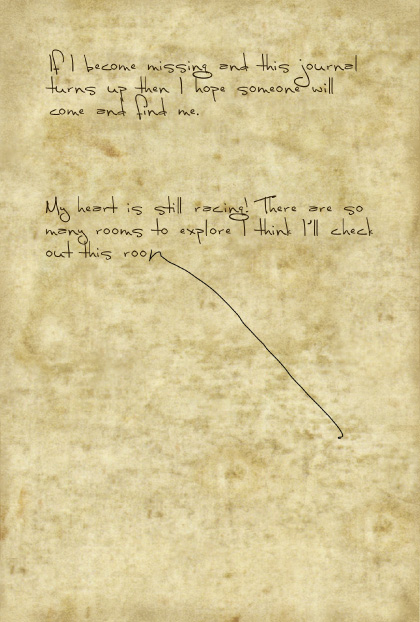 If I become missing and this journal
turns up then I hope someone will
come and find me.
My heart is still racing! There are so
many rooms to explore I think I'll check
out this room